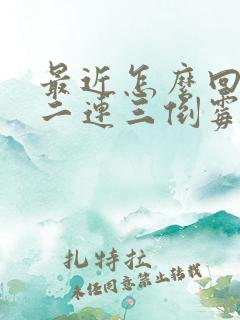 最近怎麽回
二连三倒霉
扎特拉
未经同意禁止转载